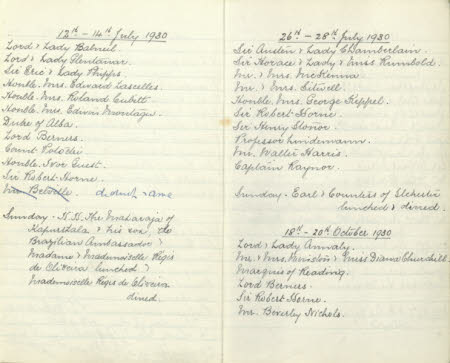 12th - 14th July 1930
Lord & Lady Balniel.
Lord & Lady Glentanar.
Sir Eric & Lady Phipps.
Honble. Mrs. Edward Lascelles.
Honble. Mrs. Roland Cubitt.
Honble. Mrs. Edwin Montagu.
Duke of Alba.
Lord Berners.
Count
Honble. Ivor Guest.
Sir Robert Horne.
didn't came
Sunday - H.H. The Maharaja of
Kapurthala & his son, the
Brazilian Ambassador,
Madame & Mademoiselle Régis
de Oliveira lunched &
Mademoiselle Régis de Oliveira
dined.
26th - 28th July 1930
Sir Austen & Lady Chamberlain.
Sir Horace & Lady & Miss Rumbold.
Mr. & Mrs. McKenna.
Mr. & Mrs. Sitwell.
Honble. Mrs. George Keppel.
Sir Robert Horne.
Sir Henry Stonor.
Professor Lindemann.
Mr. Walter Harris.
Captain Raynor.
Sunday - Earl & Countess of Ilchester
lunched & dined.
18th - 20th October 1930
Lord & Lady Annaly.
Mr. & Mrs. Winston & Miss Diana Churchill.
Marquis of Reading.
Lord Berners.
Sir Robert Horne.
Mr. Beverly Nichols.